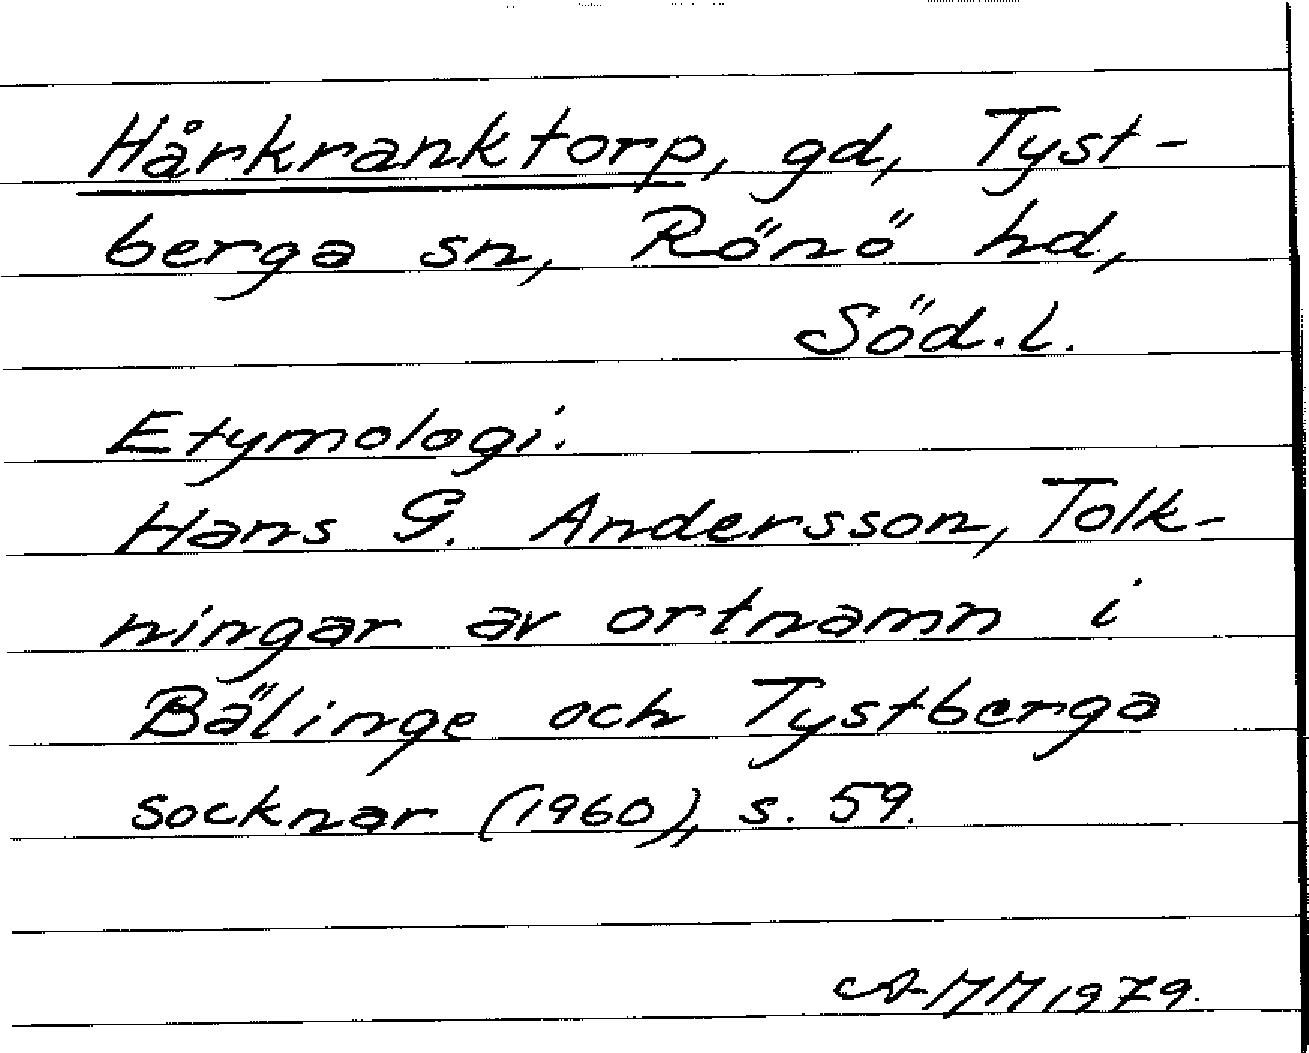 Hårkranktorp, gd, Tyst-
berga sn, Rönö hd,
Söd.l.
Etymologi.
Hans G. Andersson, Tolk-
ningar av ortnamn i
Bälinge och Tystberga
socknar (1960), s. 59.
A-MM 1979.